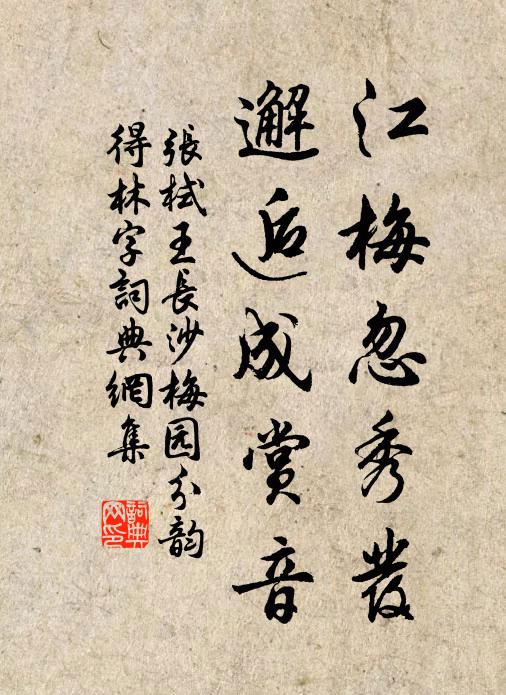 江梅忽秀發
邂逅成賞音
張栻王長沙梅园分韵
得林字詞典網集
詞典
网印